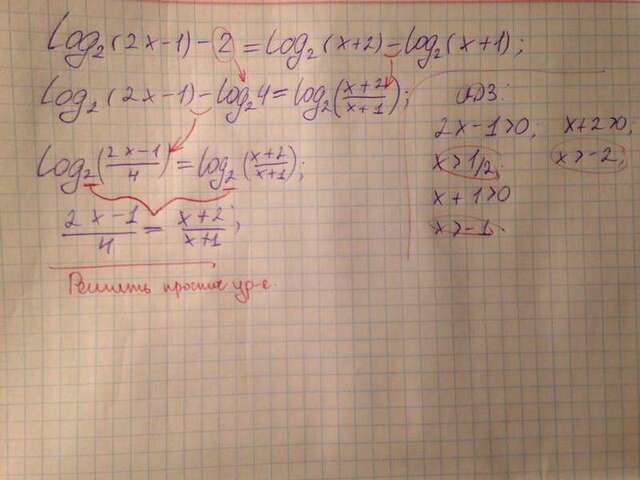 log₂(2x-1)-2=log₂(x+2)-log₂(x+1);
log₂(2x-1)-log₂4=log₂((x+2)/(x+1));
log₂((2x-1)/4)=log₂((x+2)/(x+1));
(2x-1)/4=(x+2)/(x+1);
Решить простое ур-е.
ОДЗ:
2x-1>0; x+2>0;
x>1/2; x>-2;
x+1>0
x>-1.